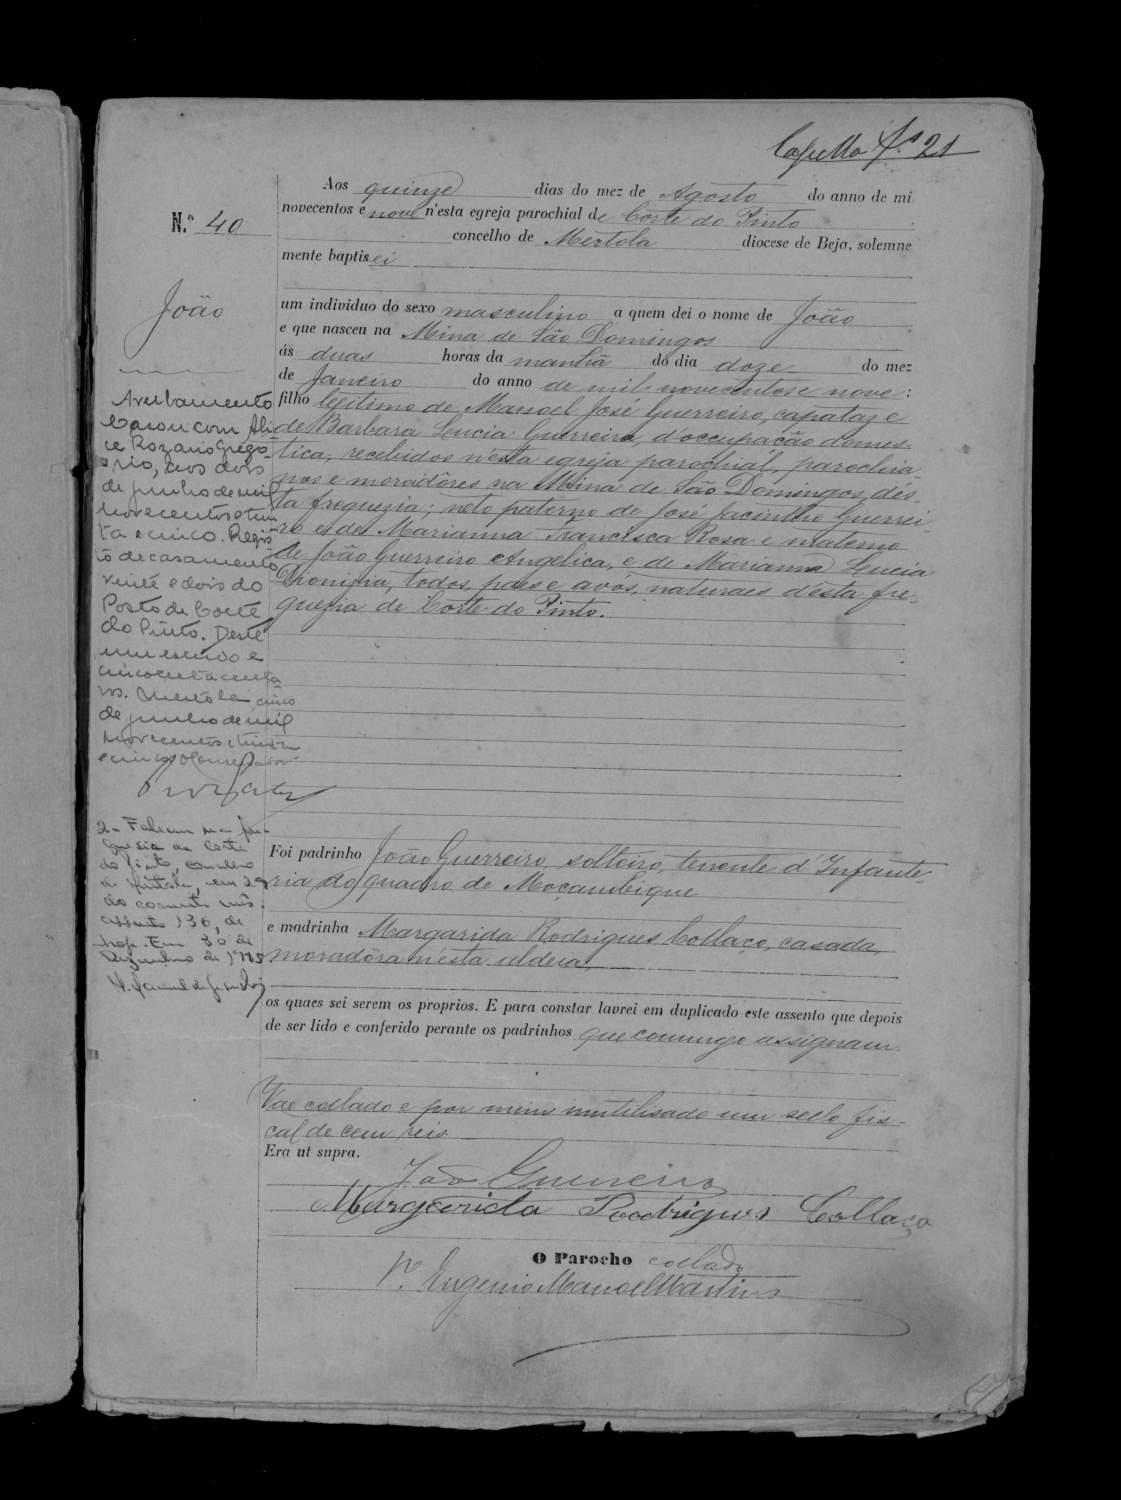 Capella Fs. 21
Aos quinze dias do mez de Agosto do anno de mi
novecentos e nove n'esta egreja parochial de Corte do Pinto
concelho de Mertola diocese de Beja, solemne
mente baptisei
N.º 40
João
um individuo do sexo masculino a quem dei o nome de João
e que nasceu na Mina de São Domingos
ás duas horas da manhã do dia doze do mez
de Janeiro do anno de mil novecentos e nove:
filho legitimo de Manoel José Guerreiro, capataz e
de Barbara Lucia Guerreira, d'occupação domes-
tica, recebidos n'esta egreja parochial, parochia-
nos e moradôres na Mina de São Domingos, dés-
ta freguezia; neto paterno de José Jacintho Guerrei-
ro e de Marianna Francisca Rosa e materno
de João Guerreiro Angelica, e de Marianna Lucia
todos, paes e avós, naturaes d'ésta fre-
guezia de Corte do Pinto.
Averbamento
Casou com Ali-
ce Rozario Grego-
rio, aos dois
de junho de mil
novecentos e trin-
ta e cinco. Regis-
to de casamento
vinte e dois do
Posto de Corte
do Pinto. Deste
um escudo e
cincoenta centa-
vos. Mertola, cinco
de junho de mil
novecentos e trinta
e cinco. O Conservador
2- Faleceu na fre-
guesia de Corte
do Pinto, concelho
de Mértola, em 29
do corrente mês.
Assento 136, de
hoje. Em 30 de
Dezembro de
Foi padrinho João Guerreiro, solteiro, tenente d'Infante-
ria do quadro de Moçambique
e madrinha Margarida Rodrigues Collaço, casada,
moradôra n'ésta aldeia,
os quaes sei serem os proprios. E para constar lavrei em duplicado este assento que depois
de ser lido e conferido perante os padrinhos que comigo assignam.
Vae collado e por mim inutilisado um sello fis-
cal de cem reis
Era ut supra.
João Guerreiro
Margarida Rodrigues Collaço
O Parocho collado
P.e Eugenio Manoel Martins